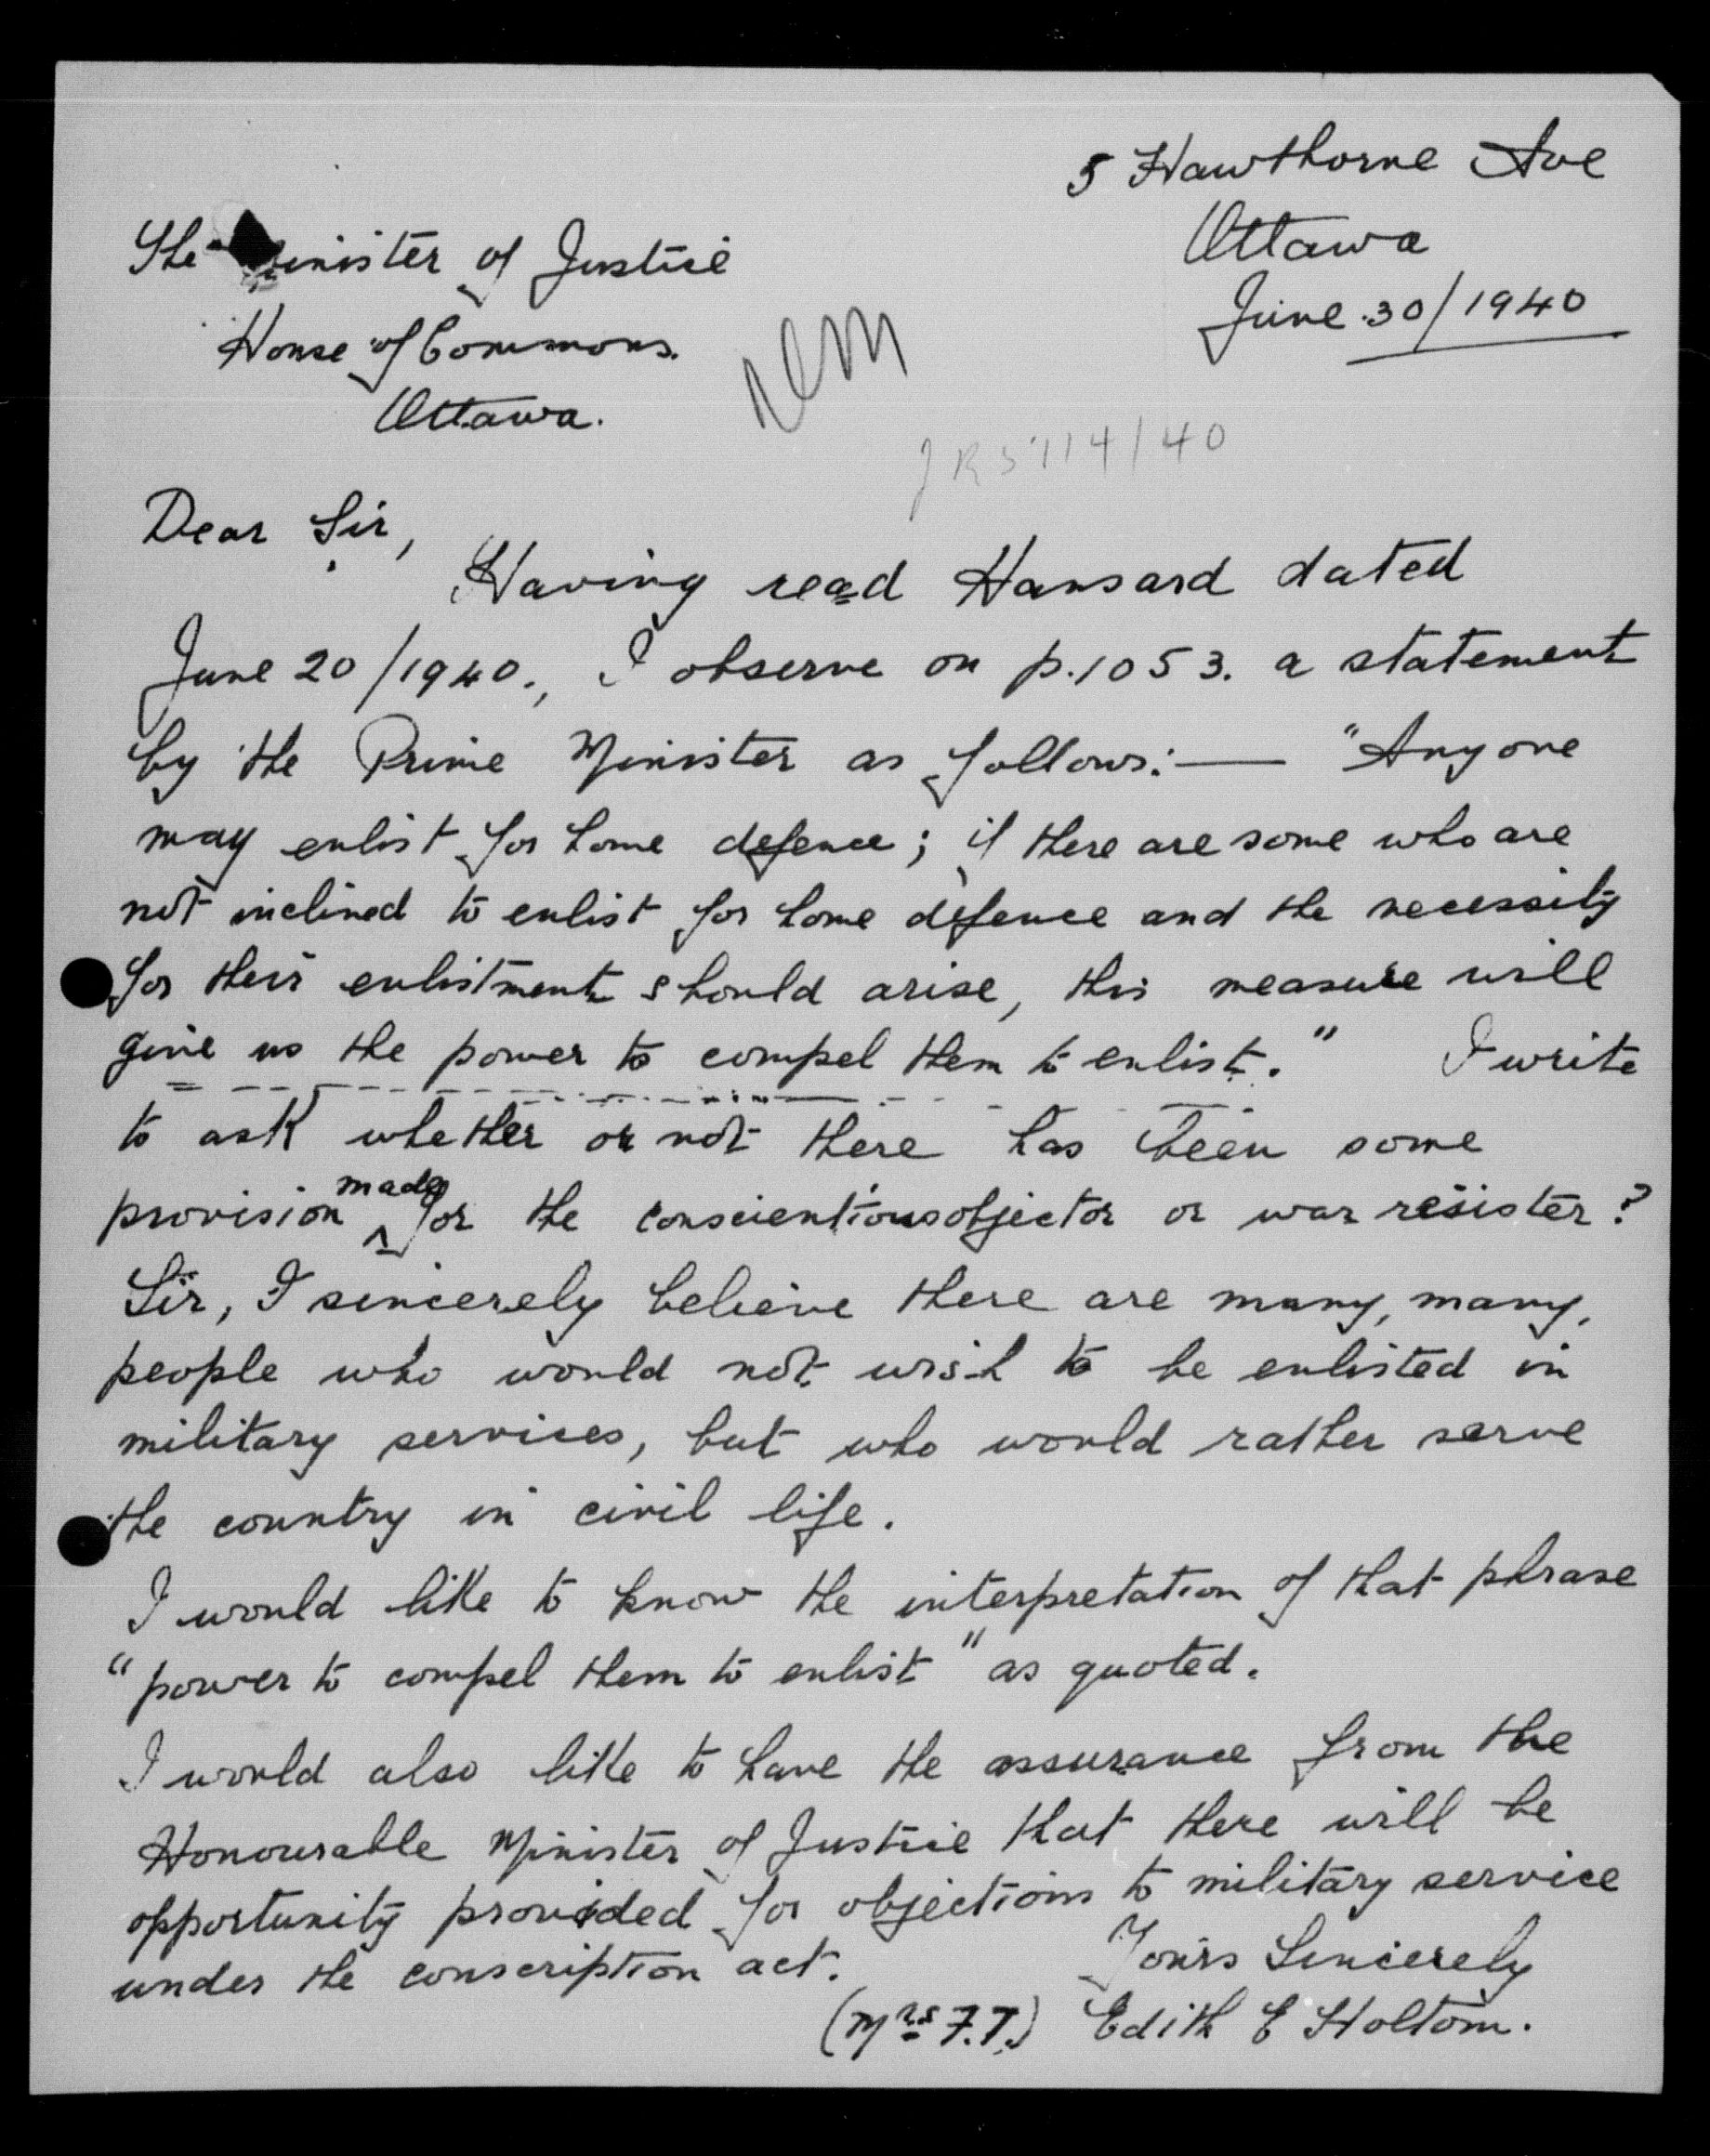 5 Hawthorne Ave
Ottawa
June 30/1940
The Minister of Justice
House of Commons.
Ottawa.
Dear Sir,
Having read Hansard dated
June 20/1940., I observe on p.1053. a statement
by the Prime Minister as follows:— "Anyone
may enlist for home defence; if there are some who are
not inclined to enlist for home defence and the necessity
for their enlistment should arise, this measure will
give us the power to compel them to enlist." I write
to ask whether or not there has been some
provision made for the conscientious objector or war resister?
Sir, I sincerely believe there are many, many,
people who would not wish to be enlisted in
military services, but who would rather serve
the country in civil life.
I would like to know the interpretation of that phrase
"power to compel them to enlist" as quoted.
I would also like to have the assurance from the
Honourable Minister of Justice that there will be
opportunity provided for objections to military service
under the conscription act.
Yours Sincerely
(Mrs F.T.) Edith E Holtom.